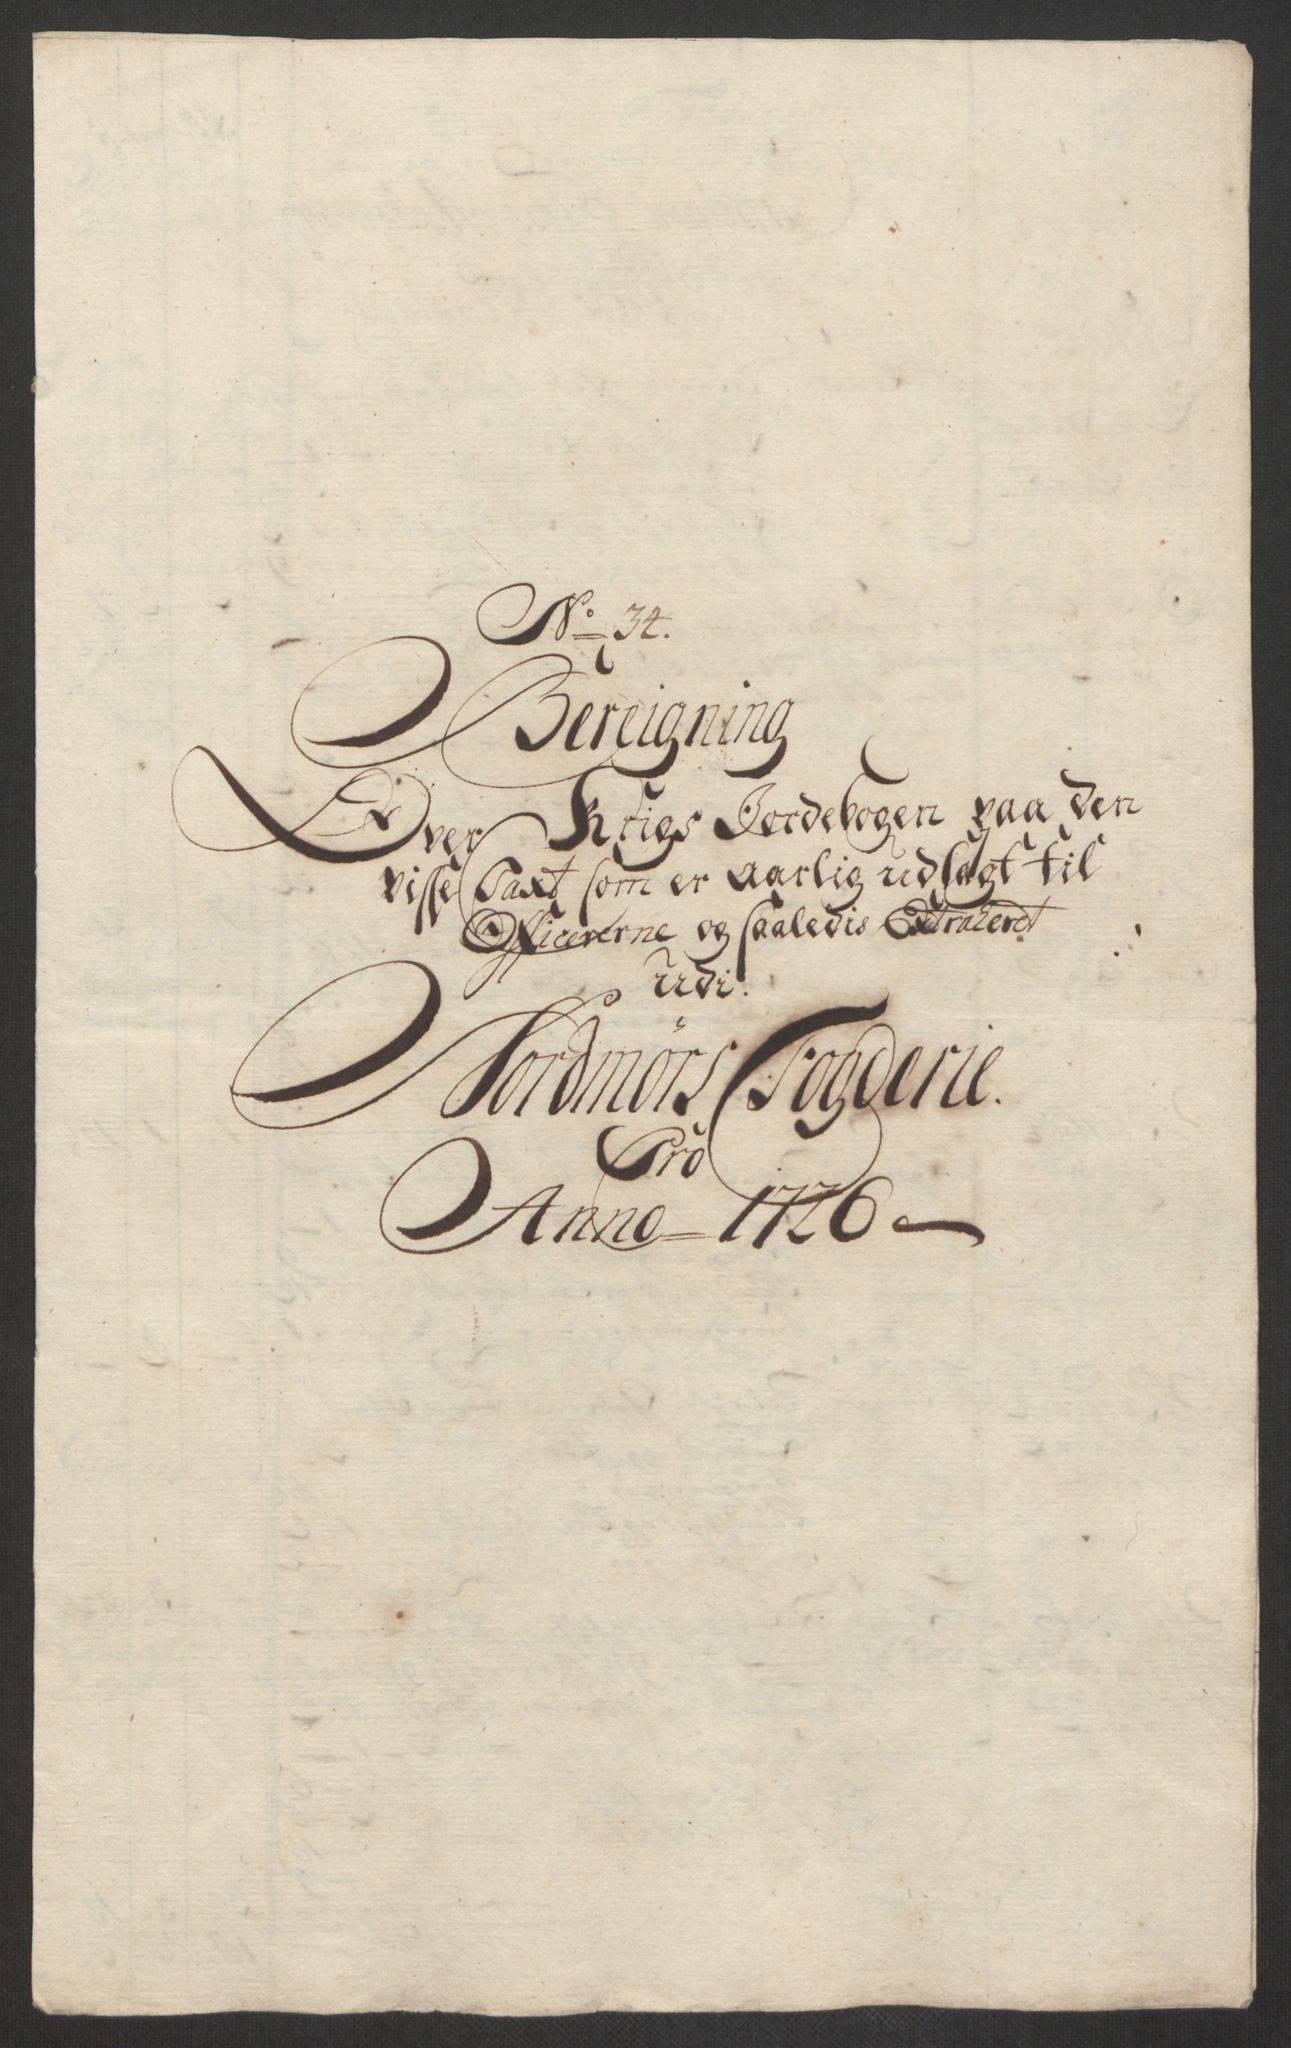 No 34.
Bereigning
Over Krigs Jordebogen paa den
visse Taxt som er aarlig udlagt til
Officererne og saaledis Extraherit
udi.
Nordmørs Fogderie.
Pro
Anno 1726